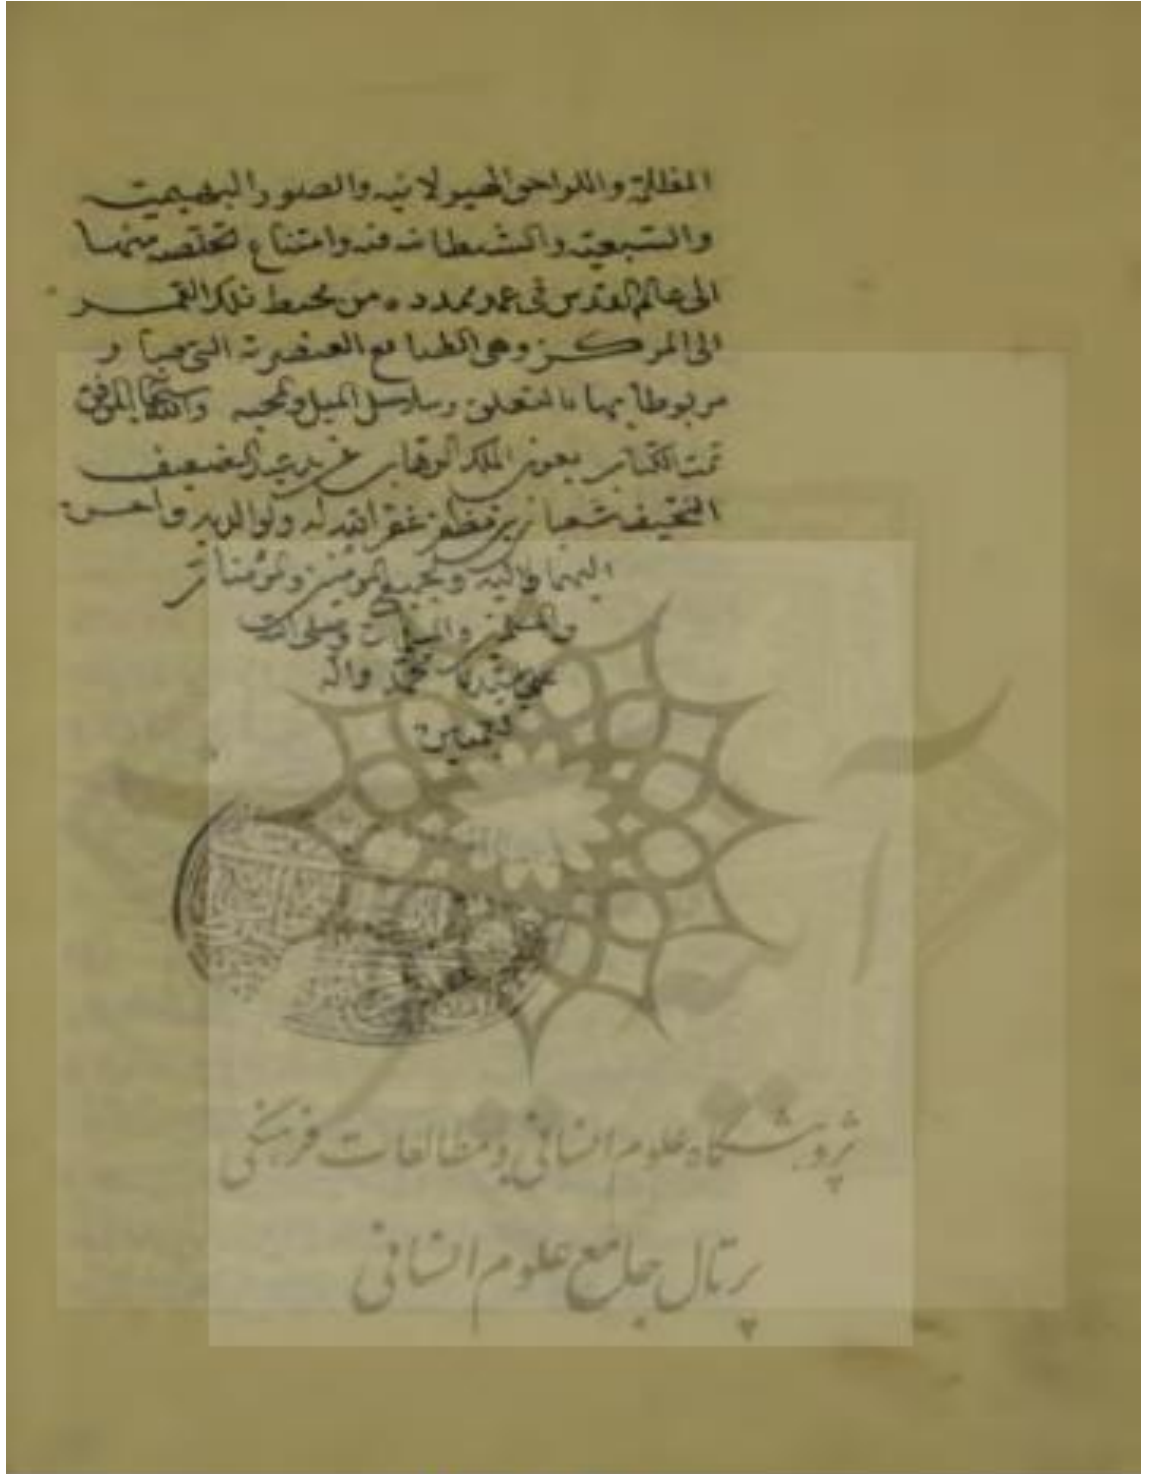 المظلمة واللواحق الهيولانيه والصور البهيمية
والسبعية والشيطانية فيه وامتناع تخلصه منها
الى عالم القدس فى عمد ممدده من محيط فلك القمر
الى المركز وهى الطبايع العنصرية التى و
مربوطا بها بالتعلق وسلاسل الميل والمحبه والله الموفق
تمت الكتاب بعون الملك الوهاب عن يد عبد الضعيف
النحيف شعبان بن مظفر غفر الله له ولوالديه واحسن
اليهما واليه ولجميع المؤمنين والمؤمنات
والمسلمين والمسلمات وصلى الله
على سيدنا محمد واله
اجمعين
پژوهشگاه علوم انسانی و مطالعات فرهنگی
پرتال جامع علوم انسانی